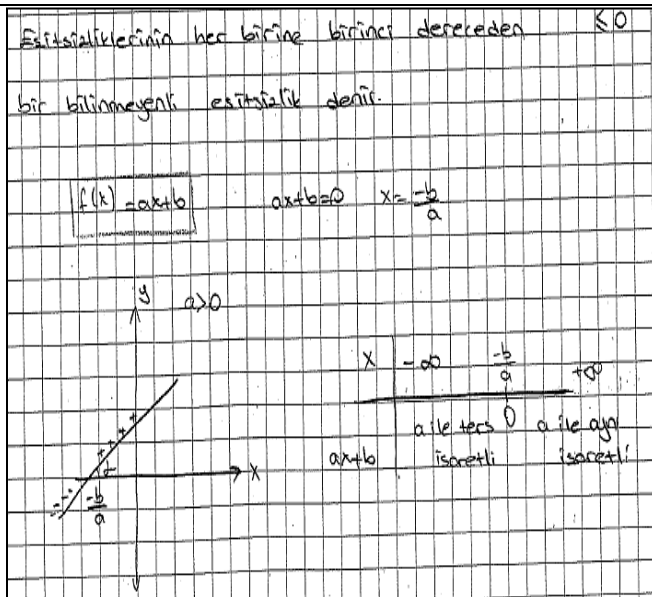 ≤0
Esitsizliklerinin her birine birinci dereceden
bir bilinmeyenli esitsizlik denir.
f(x)=ax+b ax+b=0 x=-b/a
y a>0
x -∞ -b/a +∞
ax+b a ile ters işaretli 0 a ile aynı işaretli
+ + + +
x
- - -
-b/a